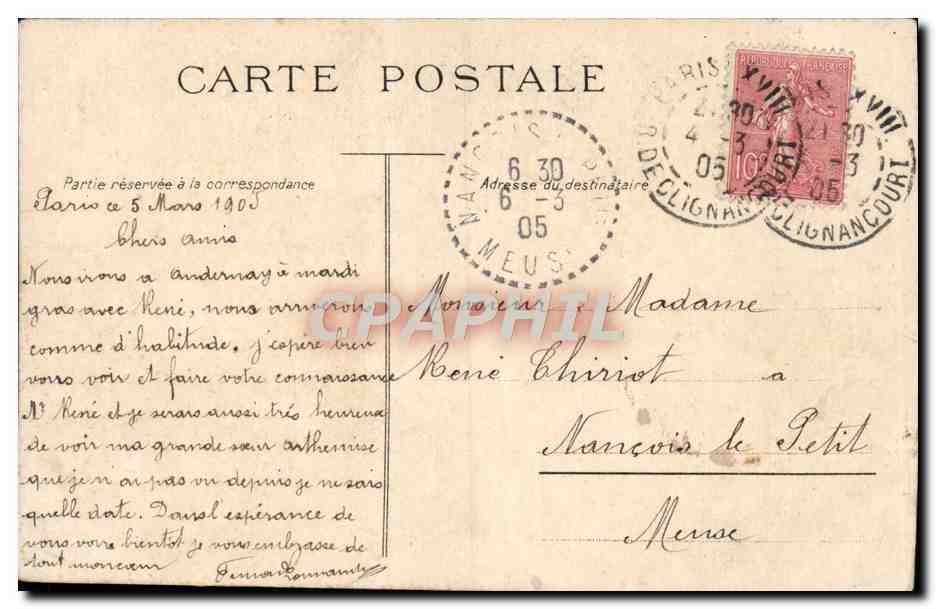 CARTE POSTALE
Partie réservée à la correspondance
Adresse du destinataire
REPUBLIQUE FRANÇAISE
10c
PARIS XVIII
4 30
4 -3
05
R. DE CLIGNANCOURT
XVIII
30
-3
05
CLIGNANCOURT
6 30
6 -3
05
MEUSE
Paris ce 5 Mars 1905
Chers amis
Nous irons a Andernay à mardi
gras avec René, nous arriverons
comme d'habitude. j'espère bien
vous voir et faire votre connaissance
Mr René et je serais aussi très heureux
de voir ma grande sœur arthemise
que je n'ai pas vu depuis je ne sais
quelle date. Dans l'espérance de
vous voire bientot je vous embrasse de
tout moncœur
Monsieur & Madame
René Thiriot a
Nançois le Petit
Meuse
CPAPHIL